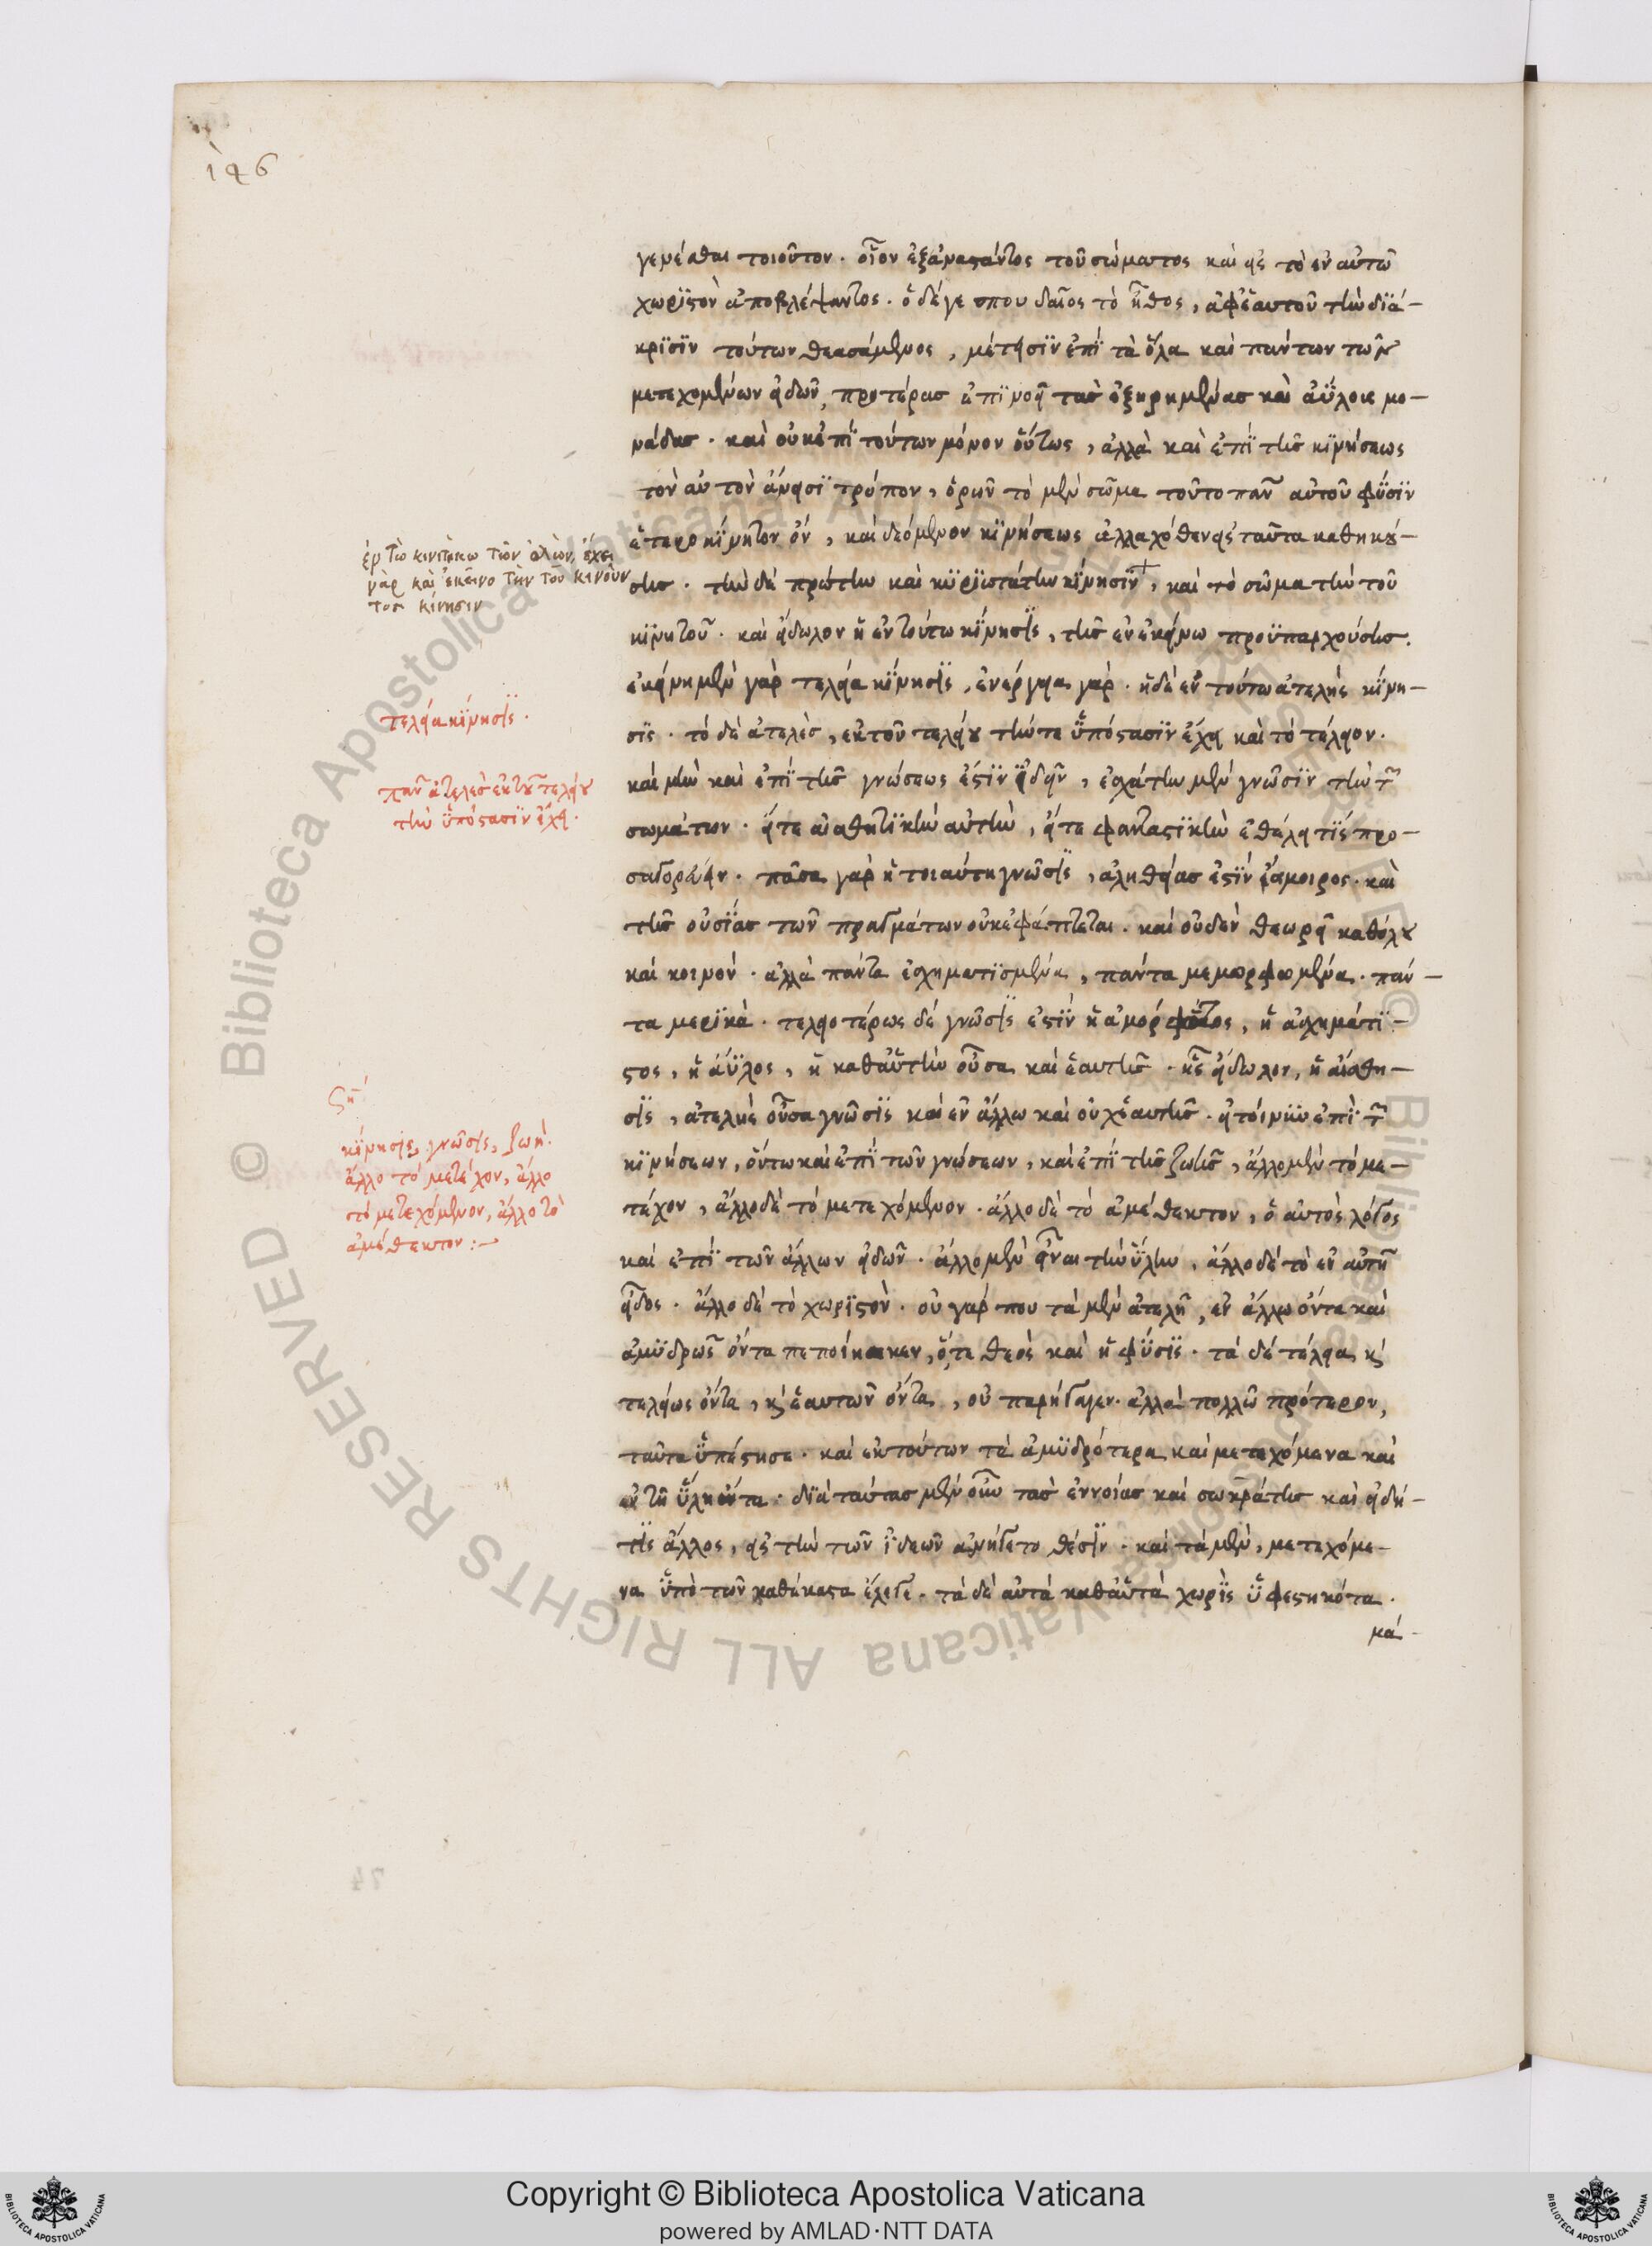 146
γενέσθαι τοιοῦτον. οἷον ἐξαναστάντος τοῦ σώματος καὶ εἰς τὸ ἐν αὐτῶ
χωριστὸν ἀποβλέψαντος. ὁ δέ γε σπουδαῖος τὸ ἦθος, ἀφ' ἑαυτοῦ τὴν διά-
κρισιν τούτων θεασάμενος, μέτεισιν ἐπὶ τὰ ὅλα καὶ πάντων τῶν
μετεχομένων εἰδῶν, προτέρας ἐπινοεῖ τὰς ἐξῃρημένας καὶ ἀΰλους μο-
νάδας. καὶ οὐκ ἐπὶ τούτων μόνον οὕτως, ἀλλὰ καὶ ἐπὶ τῆς κινήσεως
τὸν αὐτὸν ἄνεισι τρόπον, ὁρῶν τὸ μὲν σῶμα τοῦτο πᾶν αὐτοῦ φύσιν
ἑτεροκίνητον ὄν, καὶ δεόμενον κινήσεως ἀλλαχόθεν εἰς ταῦτα καθηκού-
σης. τὴν δὲ πρώτην καὶ κυριωτάτην κίνησιν, καὶ τὸ σῶμα τὴν τοῦ
κινητοῦ. καὶ εἴδωλον ἡ ἐν τούτω κίνησις, τῆς ἐν ἐκείνω προϋπαρχούσης.
ἐκείνη μὲν γὰρ τελεία κίνησις, ἐνέργεια γάρ. ἡ δὲ ἐν τούτω ἀτελὴς κίνη-
σις. τὸ δὲ ἀτελὲς, ἐκ τοῦ τελείου τήν τε ὑπόστασιν ἔχει καὶ τὸ τέλειον.
καὶ μὴν καὶ ἐπὶ τῆς γνώσεως ἔστιν ἰδεῖν, ἐσχάτην μὲν γνῶσιν τὴν τῶν
σωμάτων. εἴτε αἰσθητικὴν αὐτὴν, εἴτε φανταστικὴν ἐθέλει τίς προ-
σαγορεύειν. πᾶσα γὰρ ἡ τοιαύτη γνῶσις, ἀληθείας ἐστὶν ἄμοιρος. καὶ
τῆς οὐσίας τῶν πραγμάτων οὐκ ἐφάπτεται. καὶ οὐδὲν θεωρεῖ καθόλου
καὶ κοινόν. ἀλλὰ πάντα ἐσχηματισμένα, πάντα μεμορφωμένα. πάν-
τα μερικά. τελειοτέρως δὲ γνῶσις ἐστὶν ἡ ἀμόρφωτος, ἡ ἀσχημάτι-
στος, ἡ ἄϋλος, ἡ καθ' αὑτὴν οὖσα καὶ ἑαυτῆς. ἧς εἴδωλον, ἡ αἴσθη-
σις, ἀτελὴς οὖσα γνῶσις καὶ ἐν ἄλλω καὶ οὐχ ἑαυτῆς. εἰ τοίνυν ἐπὶ τῶν
κινήσεων, οὕτω καὶ ἐπὶ τῶν γνώσεων, καὶ ἐπὶ τῆς ζωῆς, ἄλλο μὲν τὸ με-
τέχον, ἄλλο δὲ τὸ μετεχόμενον. ἄλλο δὲ τὸ ἀμέθεκτον, ὁ αὐτὸς λόγος
καὶ ἐπὶ τῶν ἄλλων εἰδῶν. ἄλλο μὲν εἶναι τὴν ὕλην, ἄλλο δὲ τὸ ἐν αὐτῆ
εἶδος. ἄλλο δὲ τὸ χωριστόν. οὐ γάρ που τὰ μὲν ἀτελῆ, ἐν ἄλλω ὄντα καὶ
ἀμυδρῶς ὄντα πεποίηκεν, ὅ,τε θεὸς καὶ ἡ φύσις. τὰ δὲ τέλεια καὶ
τελείως ὄντα, καὶ ἑαυτῶν ὄντα, οὐ παρήγαγεν. ἀλλὰ πολλῶ πρότερον,
ταῦτα ὑπέστησε. καὶ ἐκ τούτων τὰ ἀμυδρότερα καὶ μετεχόμενα καὶ
ἐν τῆ ὕλη ὄντα. διὰ ταύτας μὲν οὖν τὰς ἐννοίας καὶ σωκράτης καὶ εἰ δή
τις ἄλλος, εἰς τὴν τῶν ἰδεῶν ἀνήγετο θέσιν. καὶ τὰ μὲν, μετεχόμε-
να ὑπὸ τῶν καθέκαστα ἔλεγε. τὰ δὲ αὐτὰ καθ' αὑτὰ χωρὶς ὑφεστηκότα.
μά-
ἐν τῶ κινητικῶ τῶν ὅλων, ἔχει
γὰρ καὶ ἐκεῖνο τὴν τοῦ κινοῦν
τοσ κίνησιν
τελεία κίνησις.
πᾶν ἀτελὲς ἐκ τοῦ τελείου
τὴν ὑπόστασιν ἔχει.
ση
κίνησις, γνῶσις, ζωή.
ἄλλο τὸ μετέχον, ἄλλο
τὸ μετεχόμενον, ἄλλο τὸ
ἀμέθεκτον:
© Biblioteca Apostolica Vaticana ALL RIGHTS RESERVED
Copyright © Biblioteca Apostolica Vaticana
powered by AMLAD·NTT DATA